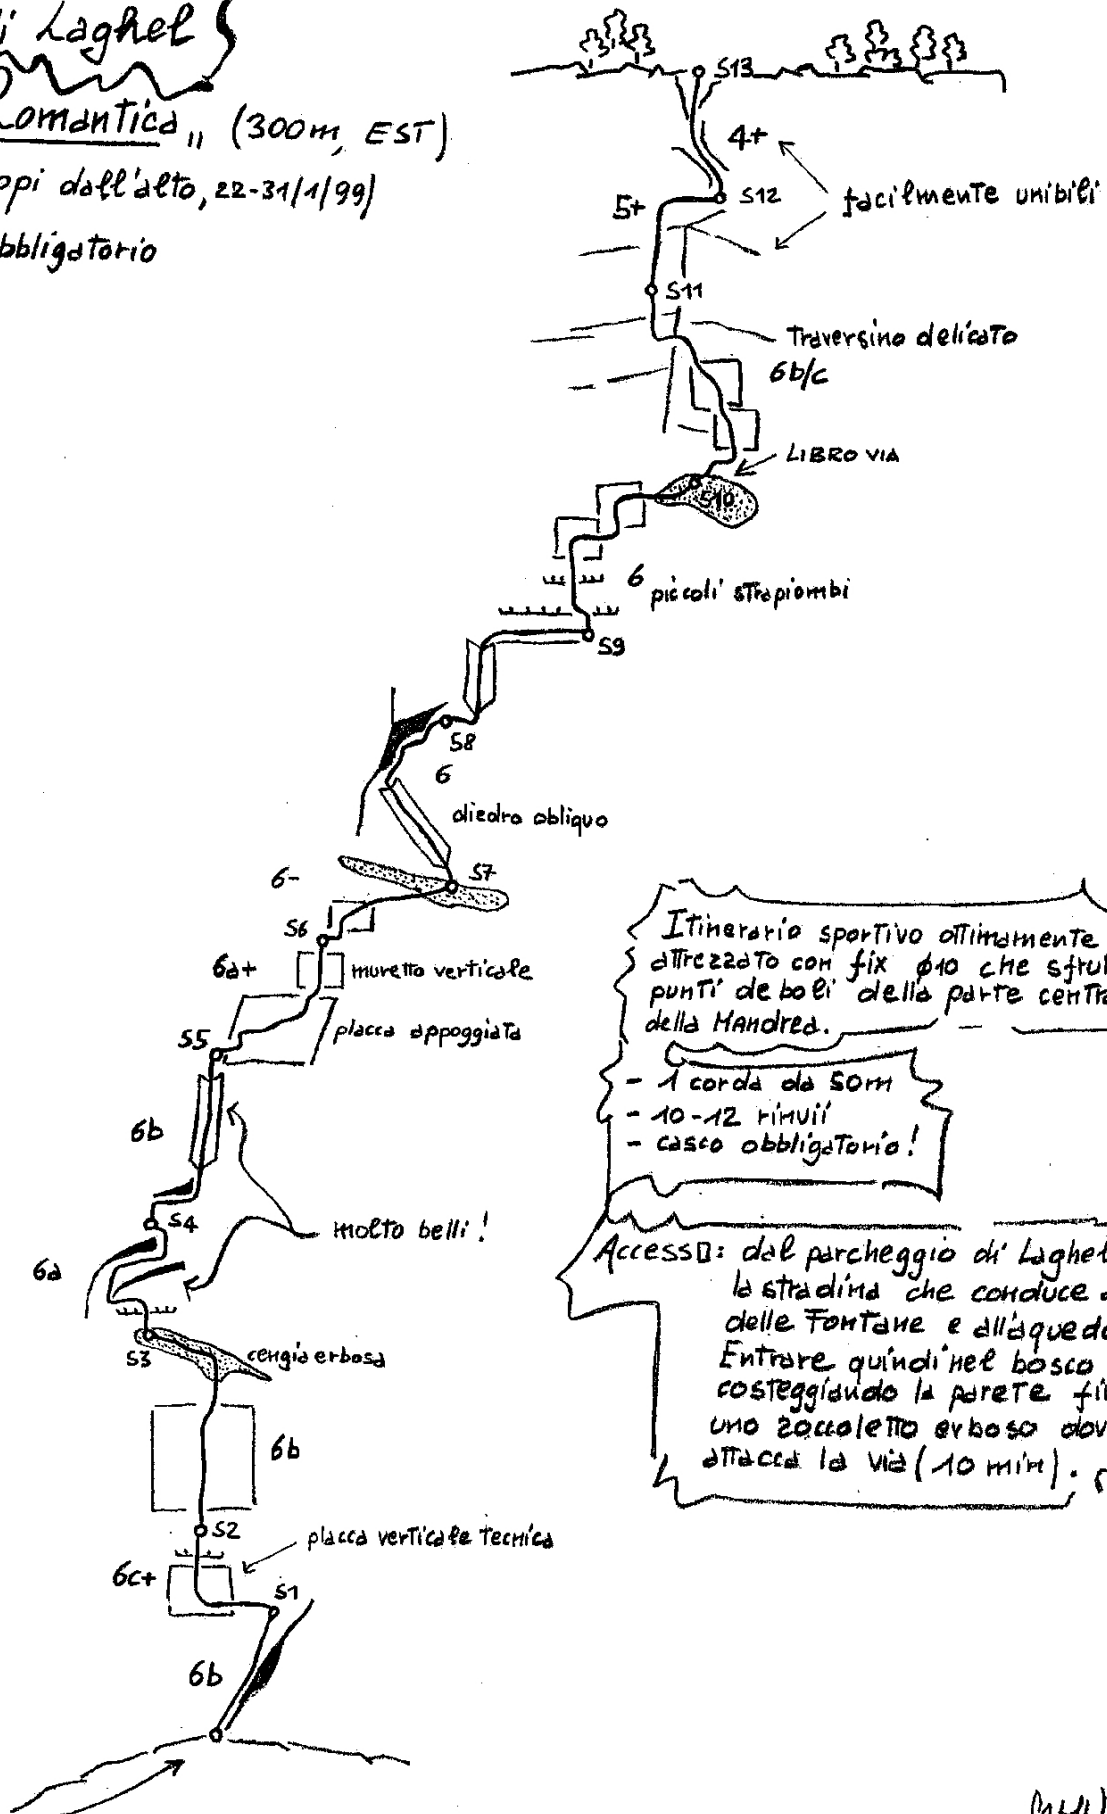 di Laghel
Romantica" (300m, EST)
dall'alto, 22-31/1/99)
obbligatorio
S13
4+
S12
5+
facilmente unibili
S11
Traversino delicato
6b/c
LIBRO VIA
S10
6
piccoli strapiombi
S9
S8
6
diedro obliquo
S7
6-
S6
6a+
muretto verticale
placca appoggiata
S5
6b
S4
molto belli!
6a
S3
cengia erbosa
6b
S2
placca verticale tecnica
6c+
S1
6b
Itinerario sportivo ottimamente
attrezzato con fix ø10 che
punti deboli della parte
della Mandrea.
- 1 corda da 50m
- 10-12 rinvii
- casco obbligatorio!
Accesso: dal parcheggio di Laghel
la stradina che conduce
delle Fontane e
Entrare quindi nel bosco
costeggiando la parete
uno zoccoletto erboso
attacca la via (10 min).